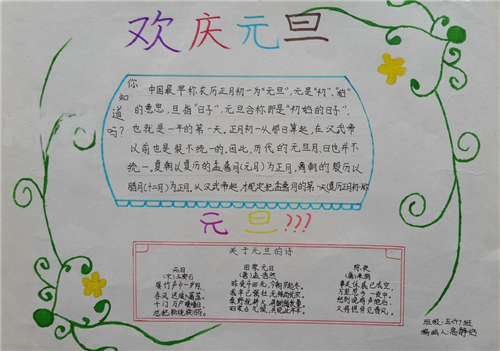 欢庆元旦
你知道吗？
中国最早称农历正月初一为“元旦”，元是“初”、“始”
的意思，旦指“日子”，元旦合称即是“初始的日子”，
也就是一年的第一天。正月初一从那日算起，在汉武帝
以前也是很不统一的。因此，历代的元旦月、日也并不
统一。夏朝以夏历的孟喜月(元月)为正月，商朝的殷历以
腊月(十二月)为正月。从汉武帝起，才规定把孟喜月的第一天(夏历正月初
元旦???
关于元旦的诗
元日
(宋)王安石
爆竹声中一岁除，
春风送暖入屠苏。
千门万户曈曈日，
总把新桃换旧符。
田家元日
(唐)孟浩然
昨夜斗回北，今朝岁起东。
我年已强仕，无禄尚忧农。
田家占气候，共说此年丰。
除夜
(唐)来鹄
事关休戚已成空，
万里相思一夜中。
愁到晓鸡声绝后，
又将憔悴见春风。
班级：
编辑人：